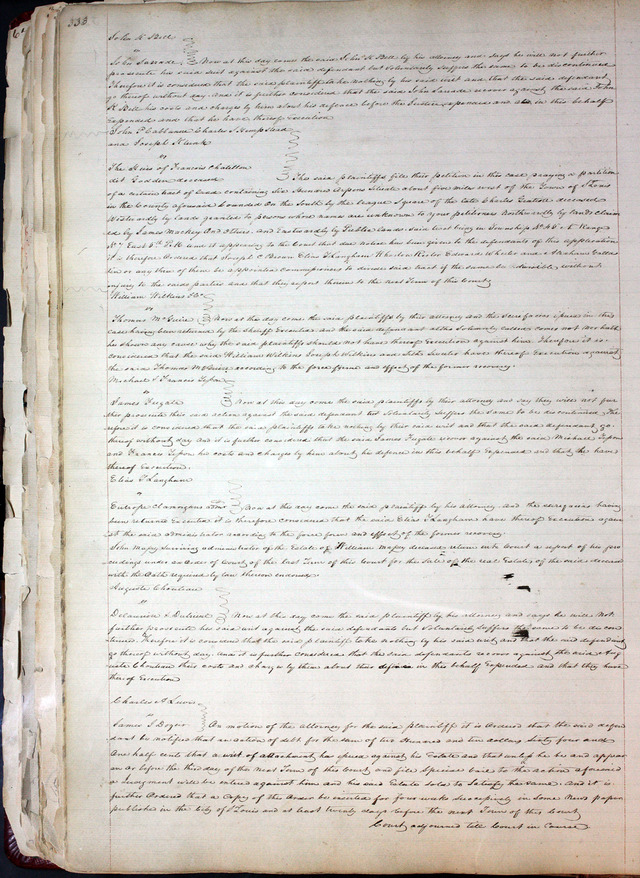 333
John K Bell
"
John Savade } Now at this day come the said John K Bell by his attorney and says he will not further
prosecute his said suit against the said defendant but voluntarily suffers the same to be discontinued
Therefore it is considered that the said plaintiff take nothing by his said writ and that the said defendant
go thereof without day. And it is further considered that the said John Savade recover against the said John
K Bell his costs and charges by him about his defence before the Justice expended and also in this behalf
Expended and that he have thereof Execution
John P Cabbanne Charles S Hempstead
and Joseph
"
The Heirs of Francis Chatillon
dit Godden deceased } The said plaintiffs file their petition in this case praying a partition
of a certain tract of Land containing Six Hundred Arpens Situate about five miles west of the Town of St Louis
in the County aforesaid bounded On the South by the league Square of the late Charles Gratiot deceased
Westwardly by Lands granted to persons whose names are unknown to your petitioners Northwardly by land claimed
by James Mackey And Others. and Eastwardly by Public lands. said tract being in Township No 45 & Range
No 7 East 5th P.M. and it appearing to the Court that due notice has been given to the defendants of this application
it is therefore Ordered that Joseph C Brown Elias T Langham Edward Wheeler and Abraham
or any three of them be appointed Commissioners to divide said tract if the same be divisible without
injury to the said parties and that they report thereon to the next Term of this Court
William Wilkins &c
"
Thomas McGuire } Now at this day come the said plaintiffs by their attorney and the scire facias issued in this
case having been returned by the Sheriff Executed and the said defendant altho Solemnly called comes not nor hath
he shown any cause why the said plaintiffs should not have thereof Execution against him. Therefore it is
considered that the said William Wilkins Joseph Wilkins and have thereof Execution against
the said Thomas McGuire according to the force form and effect of the former recovery.
Michael & Francis Tesson
"
James Fugate } Now at this day come the said plaintiffs by their attorney and say they will not fur
ther prosecute their said action against the said defendant but Voluntarily Suffers the same to be discontinued. The
refore it is considered that the said plaintiffs take nothing by their said writ and that the said defendant go
thereof without day and it is further considered that the said James Fugate recover against the said Michael Tesson
and Francis Tesson his costs and charges by him about his defence in this behalf Expended and that he have
thereof Execution.
Elias T Langham
"
Europe admr } Now at this day come the said plaintiff by his Attorney. And the scire facias having
been returned Executed it is therefore considered that the said Elias T Langham have thereof Execution again
st the said administrator according to the force form and effect of the former recovery
John Massey Surviving administrator of the Estate of William Massey deceased return into Court a report of his proce
edings under an Order of Court of the last Term of this Court for the Sale of the real Estate of the said deceased
with the Oath required by law thereon endorsed
Auguste Chouteau
"
Delaunier & Duluval } Now at this day come the said plaintiff by his attorney and says he will not
further prosecute his said writ against the said defendants but Voluntarily Suffers the same to be discon
tinued. Therefore it is considered that the said plaintiff take nothing by his said writ and that the said defendants
go thereof without day. And it is further considered that the said defendants recover against the said Aug
uste Chouteau their costs and charges by them about their defence in this behalf Expended and that they have
thereof Execution
Charles A Lewis
"
James T Dozier } On motion of the attorney for the said plaintiff it is Ordered that the said defen
dant be notified that an action of debt for the sum of two Hundred and ten dollars Sixty four and
One half cents that a writ of attachment has issued against his Estate and that unless he be and appear
on or before the third day of the Next Term of this Court and file Special bail to the action aforesaid
a Judgment will be entered against him and his said Estate Sold to Satisfy the same. And it is
further Ordered that a Copy of this Order be inserted for four weeks Successively in Some News paper
published in the City of St Louis and at least twenty days before the next Term of this Court
Court adjourned till Court in Course